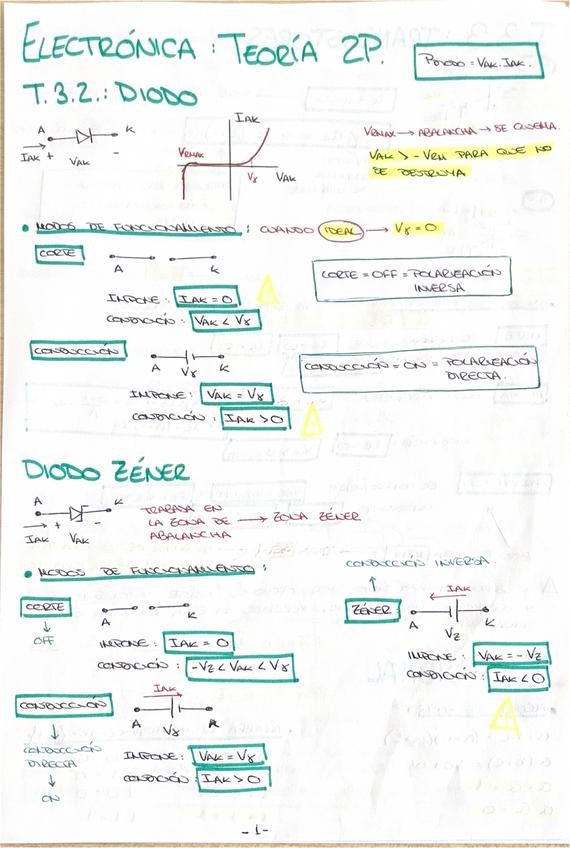 ELECTRÓNICA: TEORÍA 2P.
PDIODO = VAK . IAK.
T.3.2.: DIODO
A K
IAK + VAK -
IAK
VRMAX
Vγ VAK
VRMAX → ABALANCHA → SE QUEMA.
VAK > -VRM PARA QUE NO
SE DESTRUYA
• MODOS DE FUNCIONAMIENTO: CUANDO IDEAL → Vγ = 0
CORTE
A K
IMPONE: IAK = 0
CONDICIÓN: VAK < Vγ
CORTE = OFF = POLARIZACIÓN
INVERSA
CONDUCCIÓN
A Vγ K
IMPONE: VAK = Vγ
CONDICIÓN: IAK > 0
CONDUCCIÓN = ON = POLARIZACIÓN
DIRECTA.
DIODO ZÉNER
A K
IAK + VAK -
TRABAJA EN
LA ZONA DE → ZONA ZÉNER
ABALANCHA
• MODOS DE FUNCIONAMIENTO:
CORTE
↓
OFF
A K
IMPONE: IAK = 0
CONDICIÓN: -VZ < VAK < Vγ
CONDUCCIÓN INVERSA.
↑
ZÉNER
IAK
A VZ K
IMPONE: VAK = -VZ
CONDICIÓN: IAK < 0
CONDUCCIÓN
↓
CONDUCCIÓN
DIRECTA
↓
ON
IAK
A Vγ K
IMPONE: VAK = Vγ
CONDICIÓN: IAK > 0
- 1 -